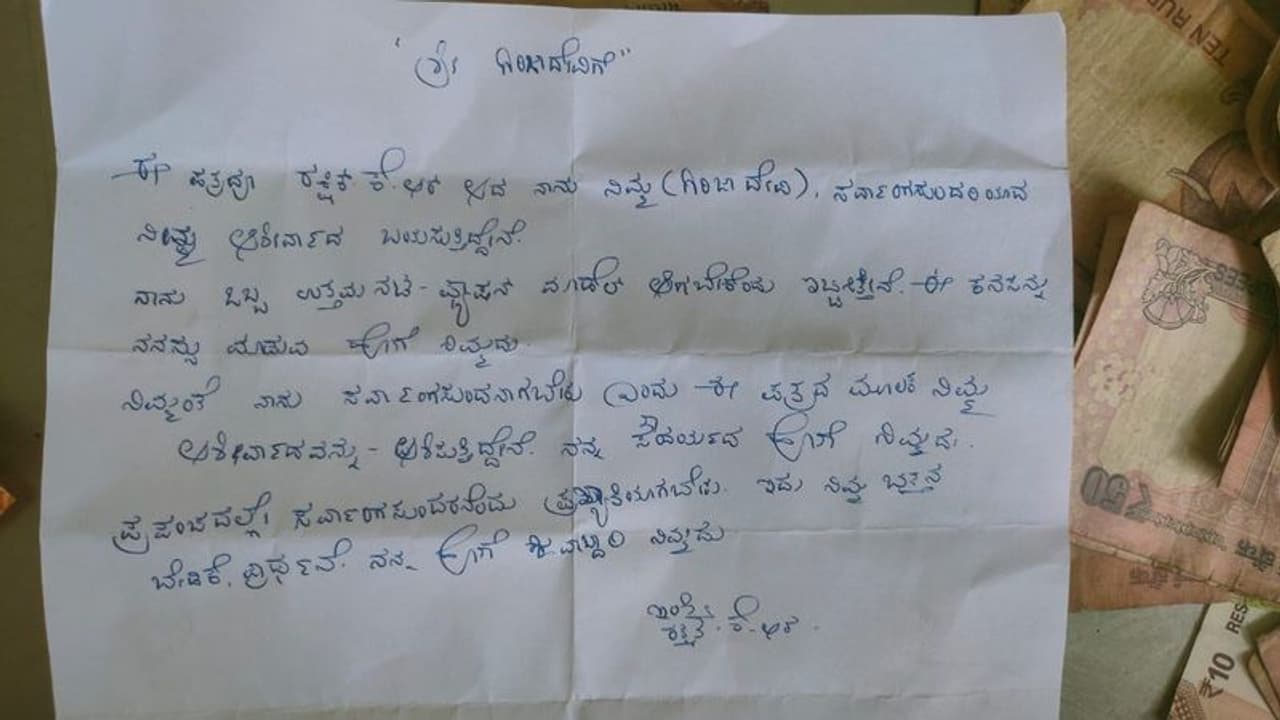 "ಶ್ರೀ ಗಿರಿಜಾದೇವಿಗೆ"
ಈ ಪತ್ರದ್ವಾರಾ ರಕ್ಷಿತ್. ಕೆ. ಆರ್ ಆದ ನಾನು ನಿಮ್ಮ (ಗಿರಿಜಾ ದೇವಿ), ಸರ್ವಾಂಗಸುಂದರಿಯಾದ
ನಿಮ್ಮ ಆಶೀರ್ವಾದ ಬಯಸುತ್ತಿದ್ದೇನೆ.
ನಾನು ಒಬ್ಬ ಉತ್ತಮ ನಟ - ಫ್ಯಾಷನ್ ಮಾಡೆಲ್ ಆಗಬೇಕೆಂದು ಇಚ್ಛಿಸುತ್ತೇನೆ. ಈ ಕನಸನ್ನು
ನನಸು ಮಾಡುವ ಹೊಣೆ ನಿಮ್ಮದು.
ನಿಮ್ಮಂತೆ ನಾನು ಸರ್ವಾಂಗಸುಂದರನಾಗಬೇಕು ಎಂದು ಈ ಪತ್ರದ ಮೂಲಕ ನಿಮ್ಮ
ಆಶೀರ್ವಾದವನ್ನು - ಆಶಿಸುತ್ತಿದ್ದೇನೆ. ನನ್ನ ಸೌಂದರ್ಯದ ಹೊಣೆ ನಿಮ್ಮದು.
ಪ್ರಪಂಚದಲ್ಲೇ ಸರ್ವಾಂಗಸುಂದರನೆಂದು ಪ್ರಖ್ಯಾತಿಯಾಗಬೇಕು. ಇದು ನಿಮ್ಮ ಭಕ್ತನ
ಬೇಡಿಕೆ, ಪ್ರಾರ್ಥನೆ. ನನ್ನ ಹೊಣೆ ಜವಾಬ್ದಾರಿ ನಿಮ್ಮದು
ಇಂತಿ
ರಕ್ಷಿತ್. ಕೆ. ಆರ್.
TEN RU
50
₹10
RES